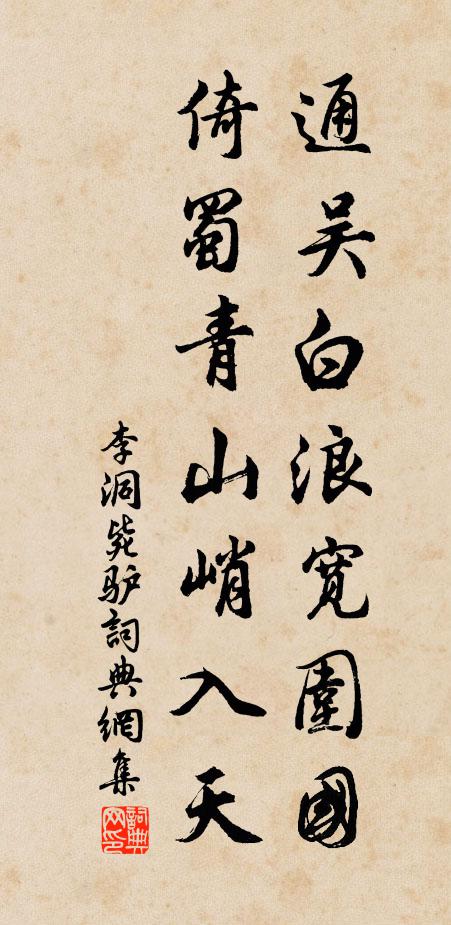 通吴白浪宽围國
倚蜀青山峭入天
李洞毙驴詞典網集
詞典网印